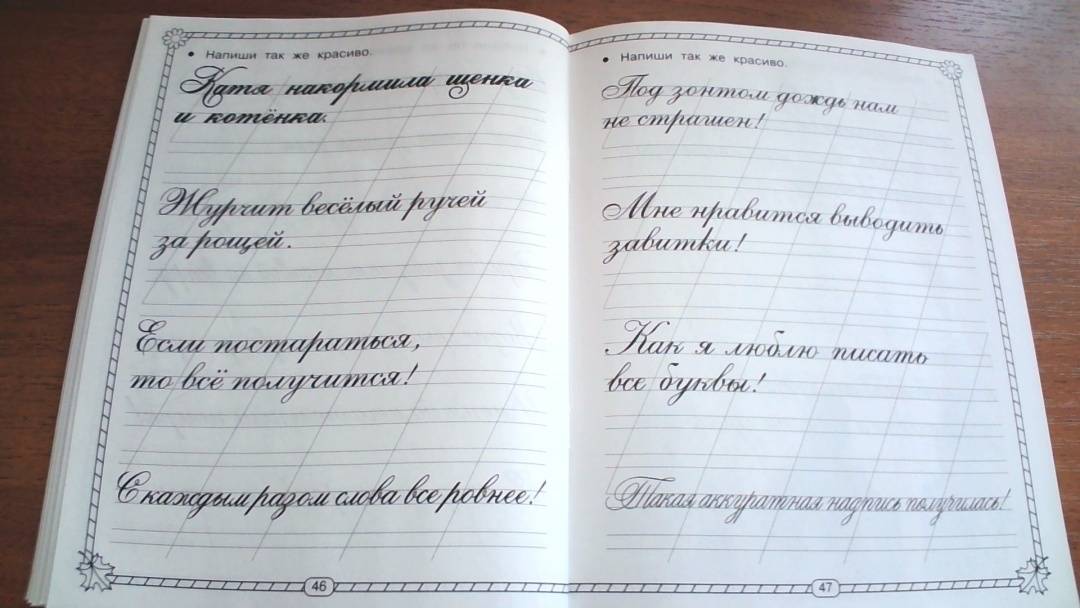 • Напиши так же красиво.
Катя накормила щенка
и котёнка.
Журчит весёлый ручей
за рощей.
Если постараться,
то всё получится!
С каждым разом слова все ровнее!
46
• Напиши так же красиво.
Под зонтом дождь нам
не страшен!
Мне нравится выводить
завитки!
Как я люблю писать
все буквы!
Такая аккуратная надпись получилась!
47